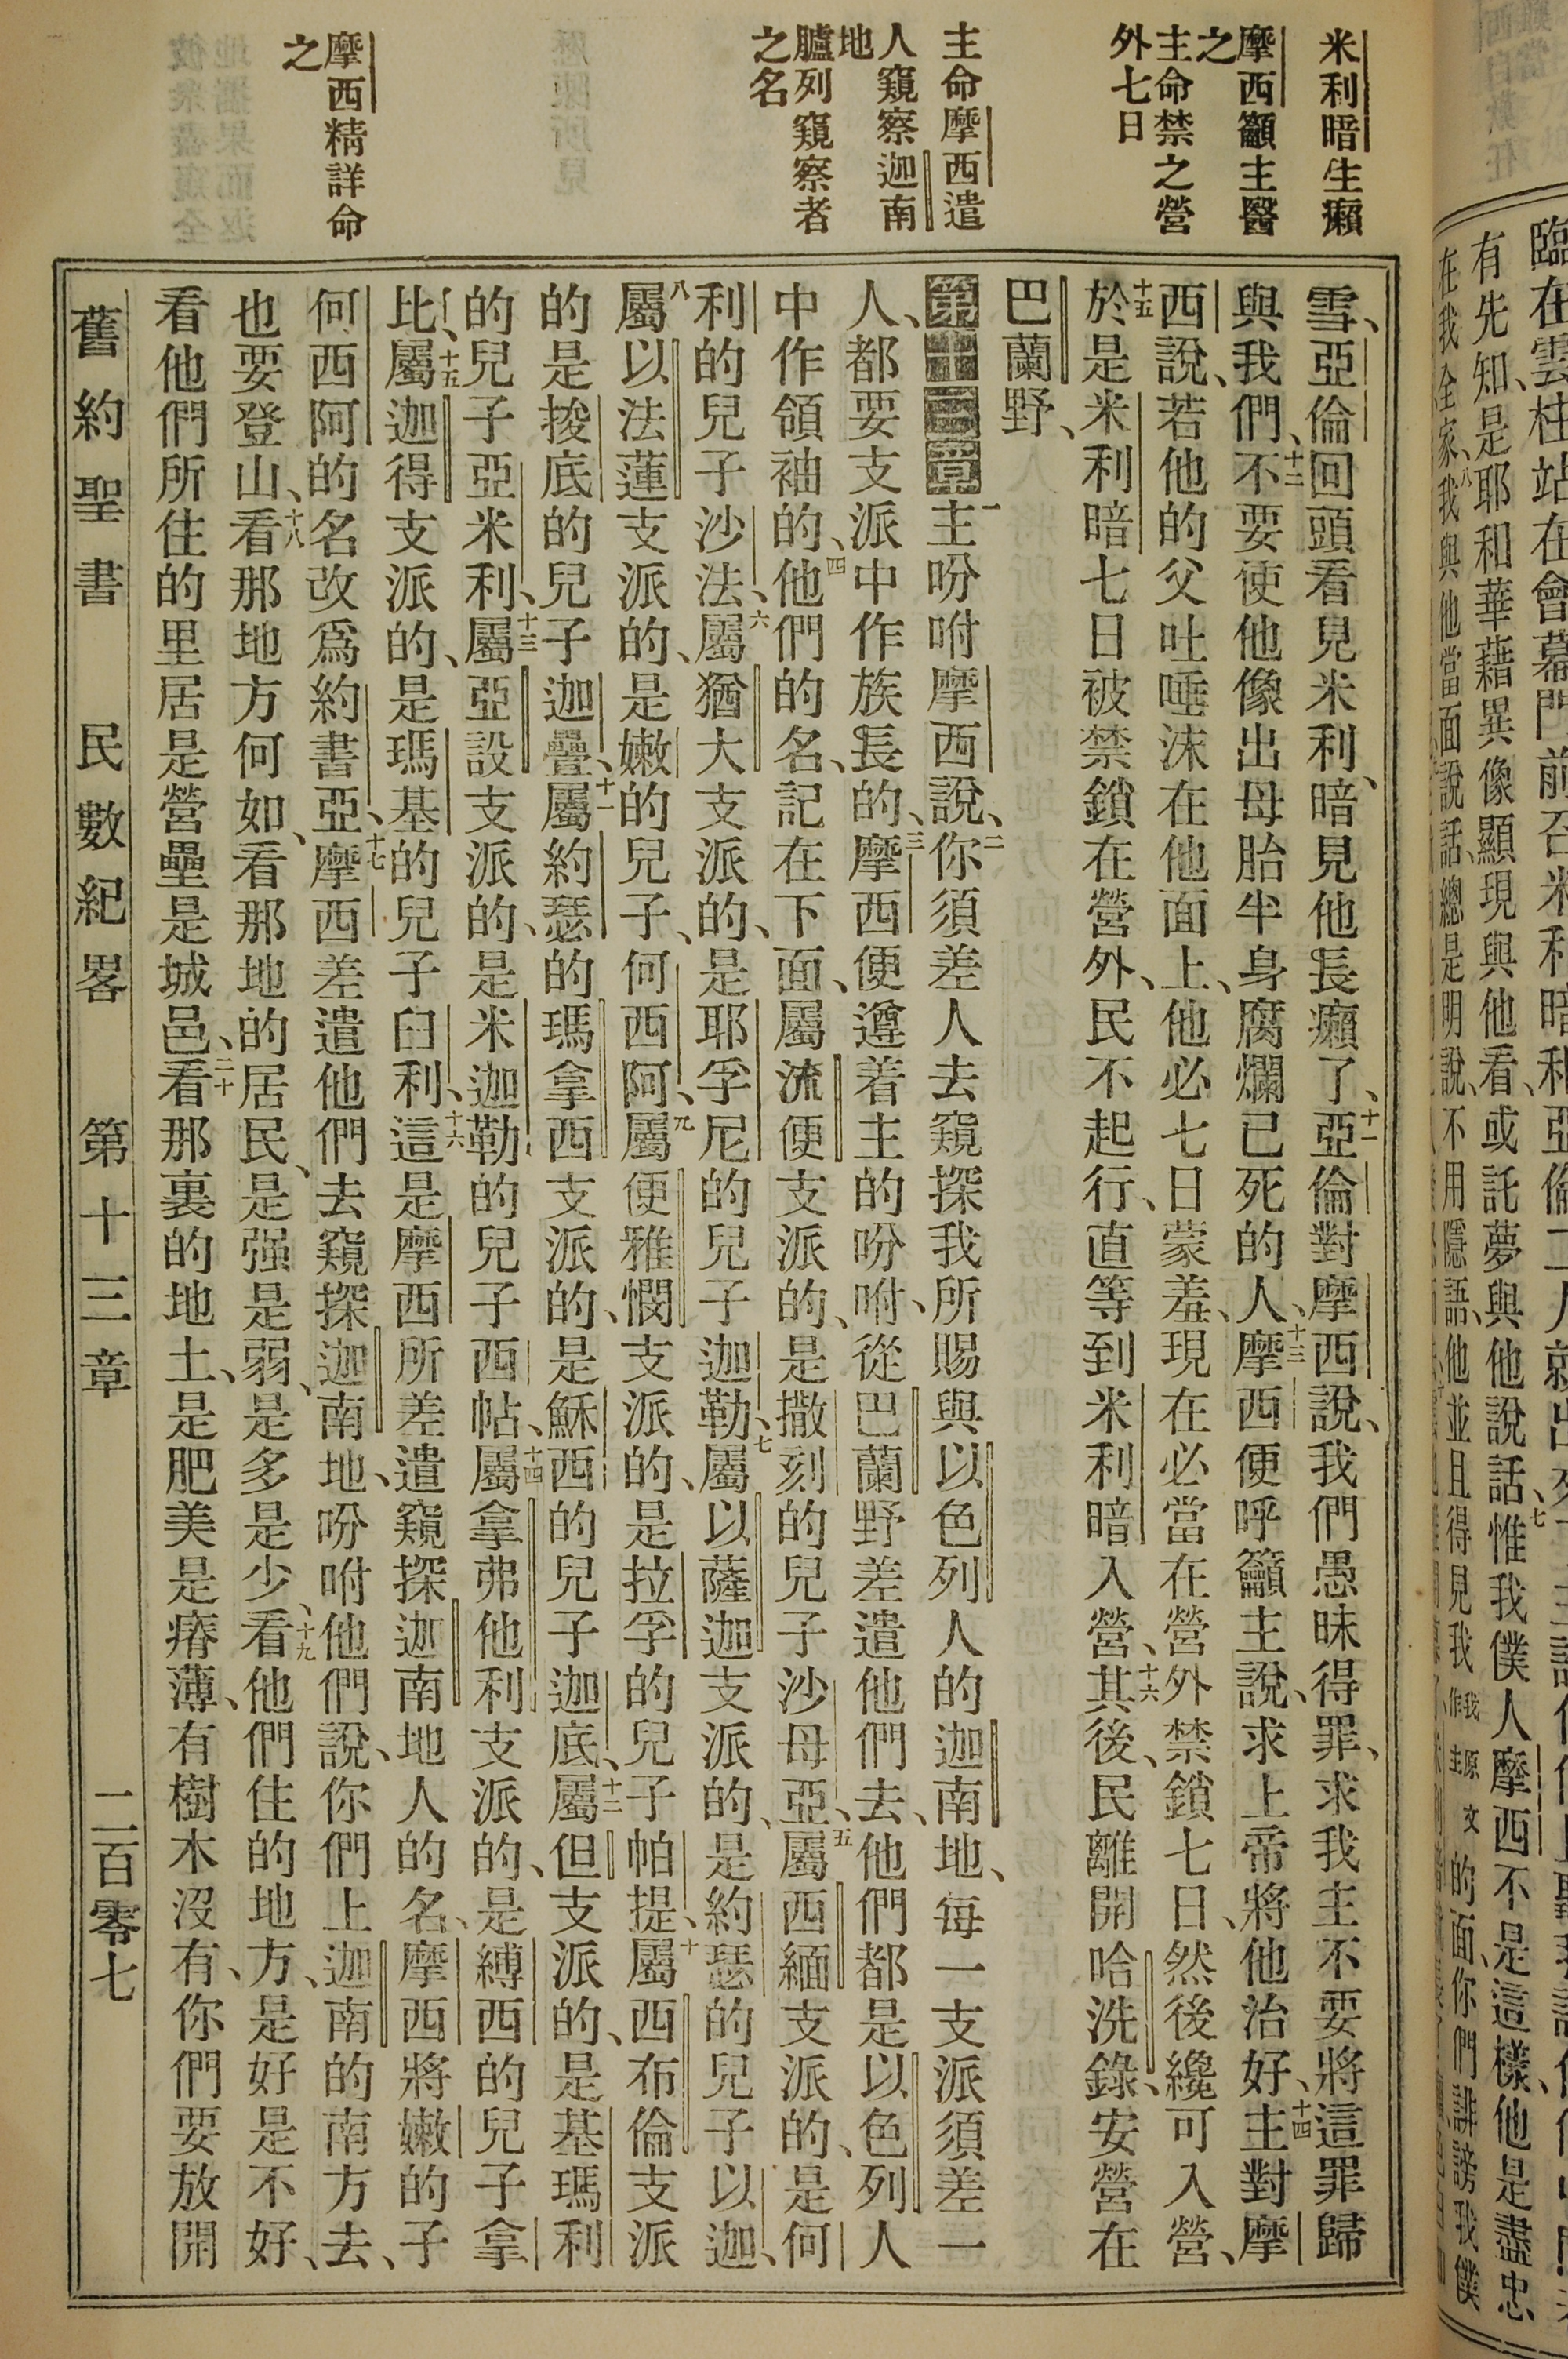 米利暗生癩
摩西籲主醫
之
主命禁之營
外七日
主命摩西遣
人窺察迦南
地
臚列窺察者
之名
摩西精詳命
之
雪、亞倫回頭看見米利、暗見他長癩了、十一亞倫對摩西說、我們愚昧得罪、求我主不要將這罪歸
與我們、十二不要使他像出母胎半身腐爛已死的人、十三摩西便呼籲主說、求上帝將他治好、十四主對摩
西說、若他的父吐唾沫在他面上、他必七日蒙羞、現在必當在營外禁鎖七日、然後纔可入營、
十五於是米利暗七日被禁鎖在營外、民不起行、直等到米利暗入營、十六其後、民離開哈洗錄、安營在
巴蘭野、
第十三章一主吩咐摩西說、二你須差人去窺探我所賜與以色列人的迦南地、每一支派須差一
人、都要支派中作族長的、三摩西便遵着主的吩咐、從巴蘭野差遣他們去、他們都是以色列人
中作領袖的、四他們的名、記在下面、屬流便支派的、是撒刻的兒子沙母亞、五屬西緬支派的、是何
利的兒子沙法、六屬猶大支派的、是耶孚尼的兒子迦勒、七屬以薩迦支派的、是約瑟的兒子以迦、
八屬以法蓮支派的、是嫩的兒子、何西阿、九屬便雅憫支派的、是拉孚的兒子帕提、十屬西布倫支派
的是掞底的兒子迦疊、十一屬約瑟的瑪拿西支派的、是穌西的兒子迦底、十二屬但支派的、是基瑪利
的兒子亞米利、十三屬亞設支派的、是米迦勒的兒子西帖、十四屬拿弗他利支派的、是縛西的兒子拿
比、十五屬迦得支派的、是瑪基的兒子臼利、十六這是摩西所差遣窺探迦南地人的名、摩西將嫩的子
何西阿的名改爲約書亞、十七摩西差遣他們去窺探迦南地、吩咐他們說、你們上迦南的南方去、
也要登山、十八看那地方何如、看那地的居民、是强是弱、是多是少、十九看他們住的地方、是好是不好、
看他們所住的里居是營壘是城邑、二十看那裏的地土、是肥美是瘠薄、有樹木沒有、你們要放開
舊約聖書 民數紀畧 第十三章 二百零七